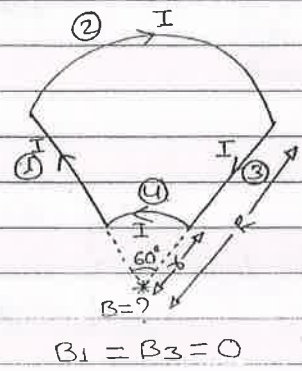 ② I
I
① I ③
④
I
60° r R
B=?
B1 = B3 = 0